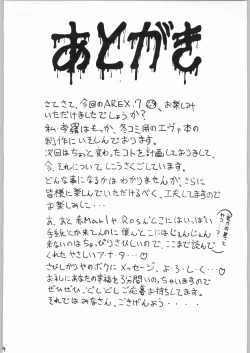 あとがき
さてさて、今回のAREX.7 お楽しみ
いただけましたでしょうか?
私・
もっか、冬コミ用のエヴァ本の
制作にいそしんでおります。
次回はちょっと変わったコトを計画しておりまして、
今、それについてしこうさくごしています。
どんな事になるかは わかりませんが、さらに
皆様に楽しんでいただけるべく、工夫しますので
お楽しみに・・・
あ、あと
さんとこにはいっぱい
手紙とか来てんのに 僕んとこにはじぇんじぇん
来ないのはちょっぴりさびしいので、ここまで読んで
くれたやさしいア・ナ・タ・・・♡
さびしがりやのボクに メッセージ、よ・ろ・し・く・・・♡
おまえにあなたの幸福を3分間いのっちゃいますので
ぜひぜひ、どしどしご応募お待ちしてます。
それではみなさん、ごきげんよう・・・・